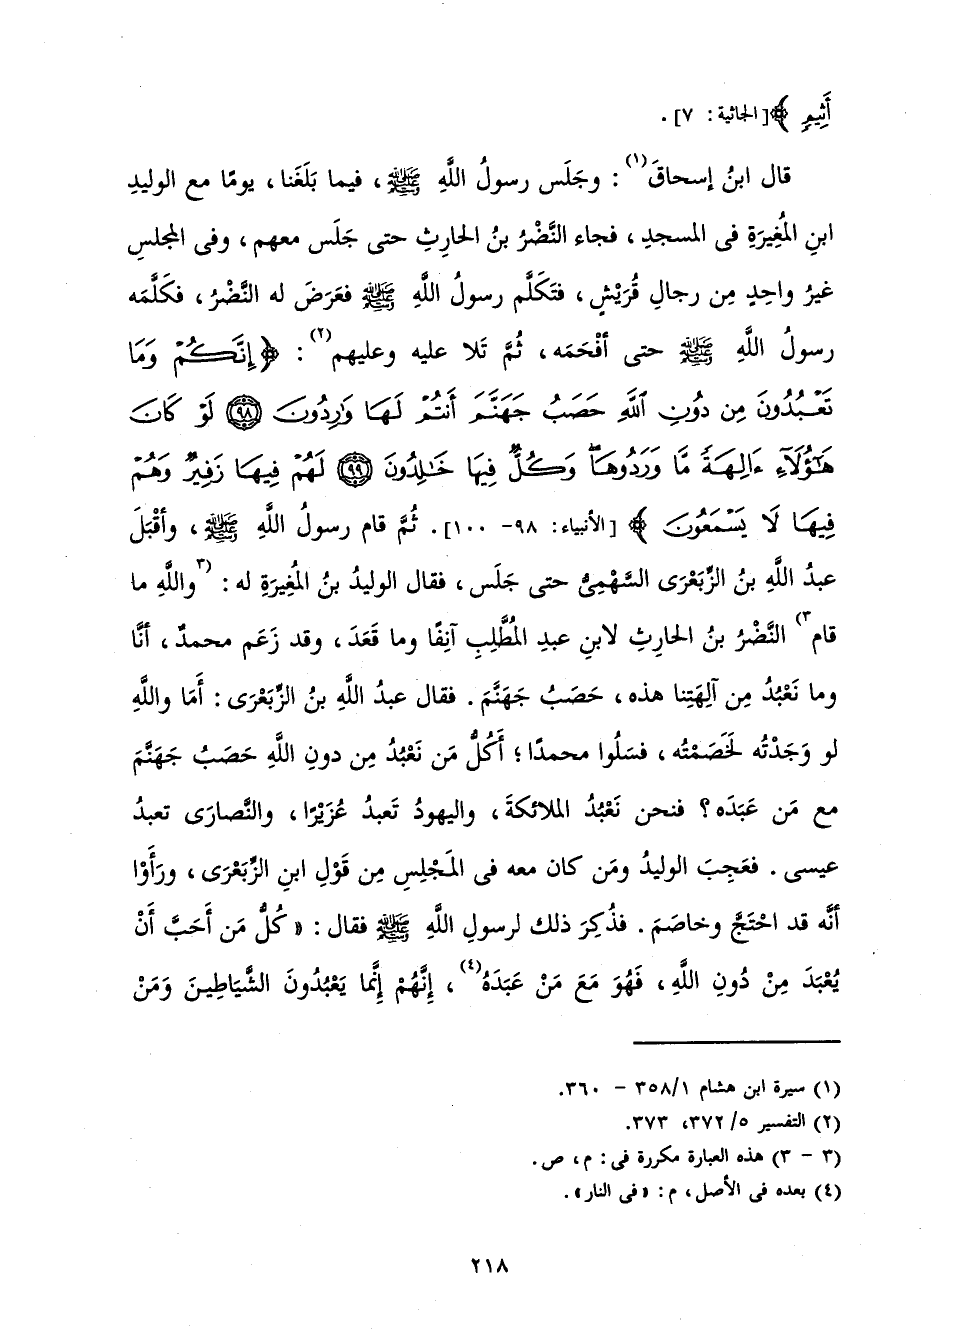 أَثِيمٍ ﴾ [الجاثية : ٧] .
قال ابنُ إسحاقَ(١) : وجَلَس رسولُ اللَّهِ ﷺ ، فيما بَلَغَنا ، يومًا مع الوليدِ
ابنِ المُغِيرَةِ فى المسجدِ ، فجاء النَّضْرُ بنُ الحارِثِ حتى جَلَس معهم ، وفى المجلسِ
غيرُ واحِدٍ مِن رجالِ قُرَيْشٍ ، فتَكَلَّم رسولُ اللَّهِ ﷺ فعَرَضَ له النَّضْرُ ، فكَلَّمَه
رسولُ اللَّهِ ﷺ حتى أفْحَمَه ، ثُمَّ تَلا عليه وعليهم(٢) : ﴿ إِنَّكُمْ وَمَا
تَعْبُدُونَ مِن دُونِ ٱللَّهِ حَصَبُ جَهَنَّمَ أَنتُمْ لَهَا وَٰرِدُونَ ﴿٩٨﴾ لَوْ كَانَ
هَٰٓؤُلَآءِ ءَالِهَةً مَّا وَرَدُوهَاۖ وَكُلٌّ فِيهَا خَٰلِدُونَ ﴿٩٩﴾ لَهُمْ فِيهَا زَفِيرٌ وَهُمْ
فِيهَا لَا يَسْمَعُونَ ﴾ [الأنبياء: ٩٨- ١٠٠] . ثُمَّ قام رسولُ اللَّهِ ﷺ ، وأقْبَلَ
عبدُ اللَّهِ بنُ الزِّبَعْرَى السَّهْمِىُّ حتى جَلَس ، فقال الوليدُ بنُ المُغِيرَةِ له : (٣واللَّهِ ما
قام٣) النَّضْرُ بنُ الحارِثِ لابنِ عبدِ المُطَّلِبِ آنِفًا وما قَعَدَ ، وقد زَعَم محمدٌ ، أنَّا
وما نَعْبُدُ مِن آلِهَتِنا هذه ، حَصَبُ جَهَنَّمَ . فقال عبدُ اللَّهِ بنُ الزِّبَعْرَى : أَمَا واللَّهِ
لو وَجَدْتُه لَخَصَمْتُه ، فسَلُوا محمدًا ؛ أَكُلُّ مَن نَعْبُدُ مِن دونِ اللَّهِ حَصَبُ جَهَنَّمَ
مع مَن عَبَدَه ؟ فنحن نَعْبُدُ الملائكةَ ، واليهودُ تَعبدُ عُزَيْرًا ، والنَّصارَى تعبدُ
عيسى . فعَجِبَ الوليدُ ومَن كان معه فى المَجْلِسِ مِن قَوْلِ ابنِ الزِّبَعْرَى ، ورَأَوْا
أنَّه قد احْتَجَّ وخاصَمَ . فذُكِرَ ذلك لرسولِ اللَّهِ ﷺ فقال : « كُلُّ مَن أَحَبَّ أَنْ
يُعْبَدَ مِنْ دُونِ اللَّهِ ، فَهُوَ مَعَ مَنْ عَبَدَهُ(٤) ، إِنَّهُمْ إِنَّما يَعْبُدُونَ الشَّيَاطِينَ وَمَنْ
(١) سيرة ابن هشام ١/ ٣٥٨ - ٣٦٠.
(٢) التفسير ٥/ ٣٧٢، ٣٧٣.
(٣ - ٣) هذه العبارة مكررة فى : م ، ص .
(٤) بعده فى الأصل ، م : « فى النار» .
٢١٨